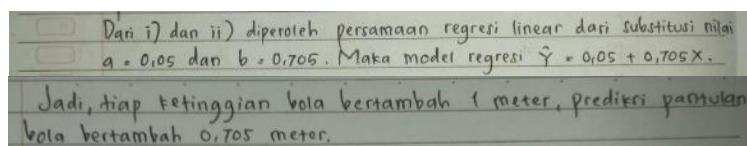 Dari i) dan ii) diperoleh persamaan regresi linear dari substitusi nilai
a = 0,05 dan b = 0,705. Maka model regresi Ŷ = 0,05 + 0,705X.
Jadi, tiap ketinggian bola bertambah 1 meter, prediksi pantulan
bola bertambah 0,705 meter.